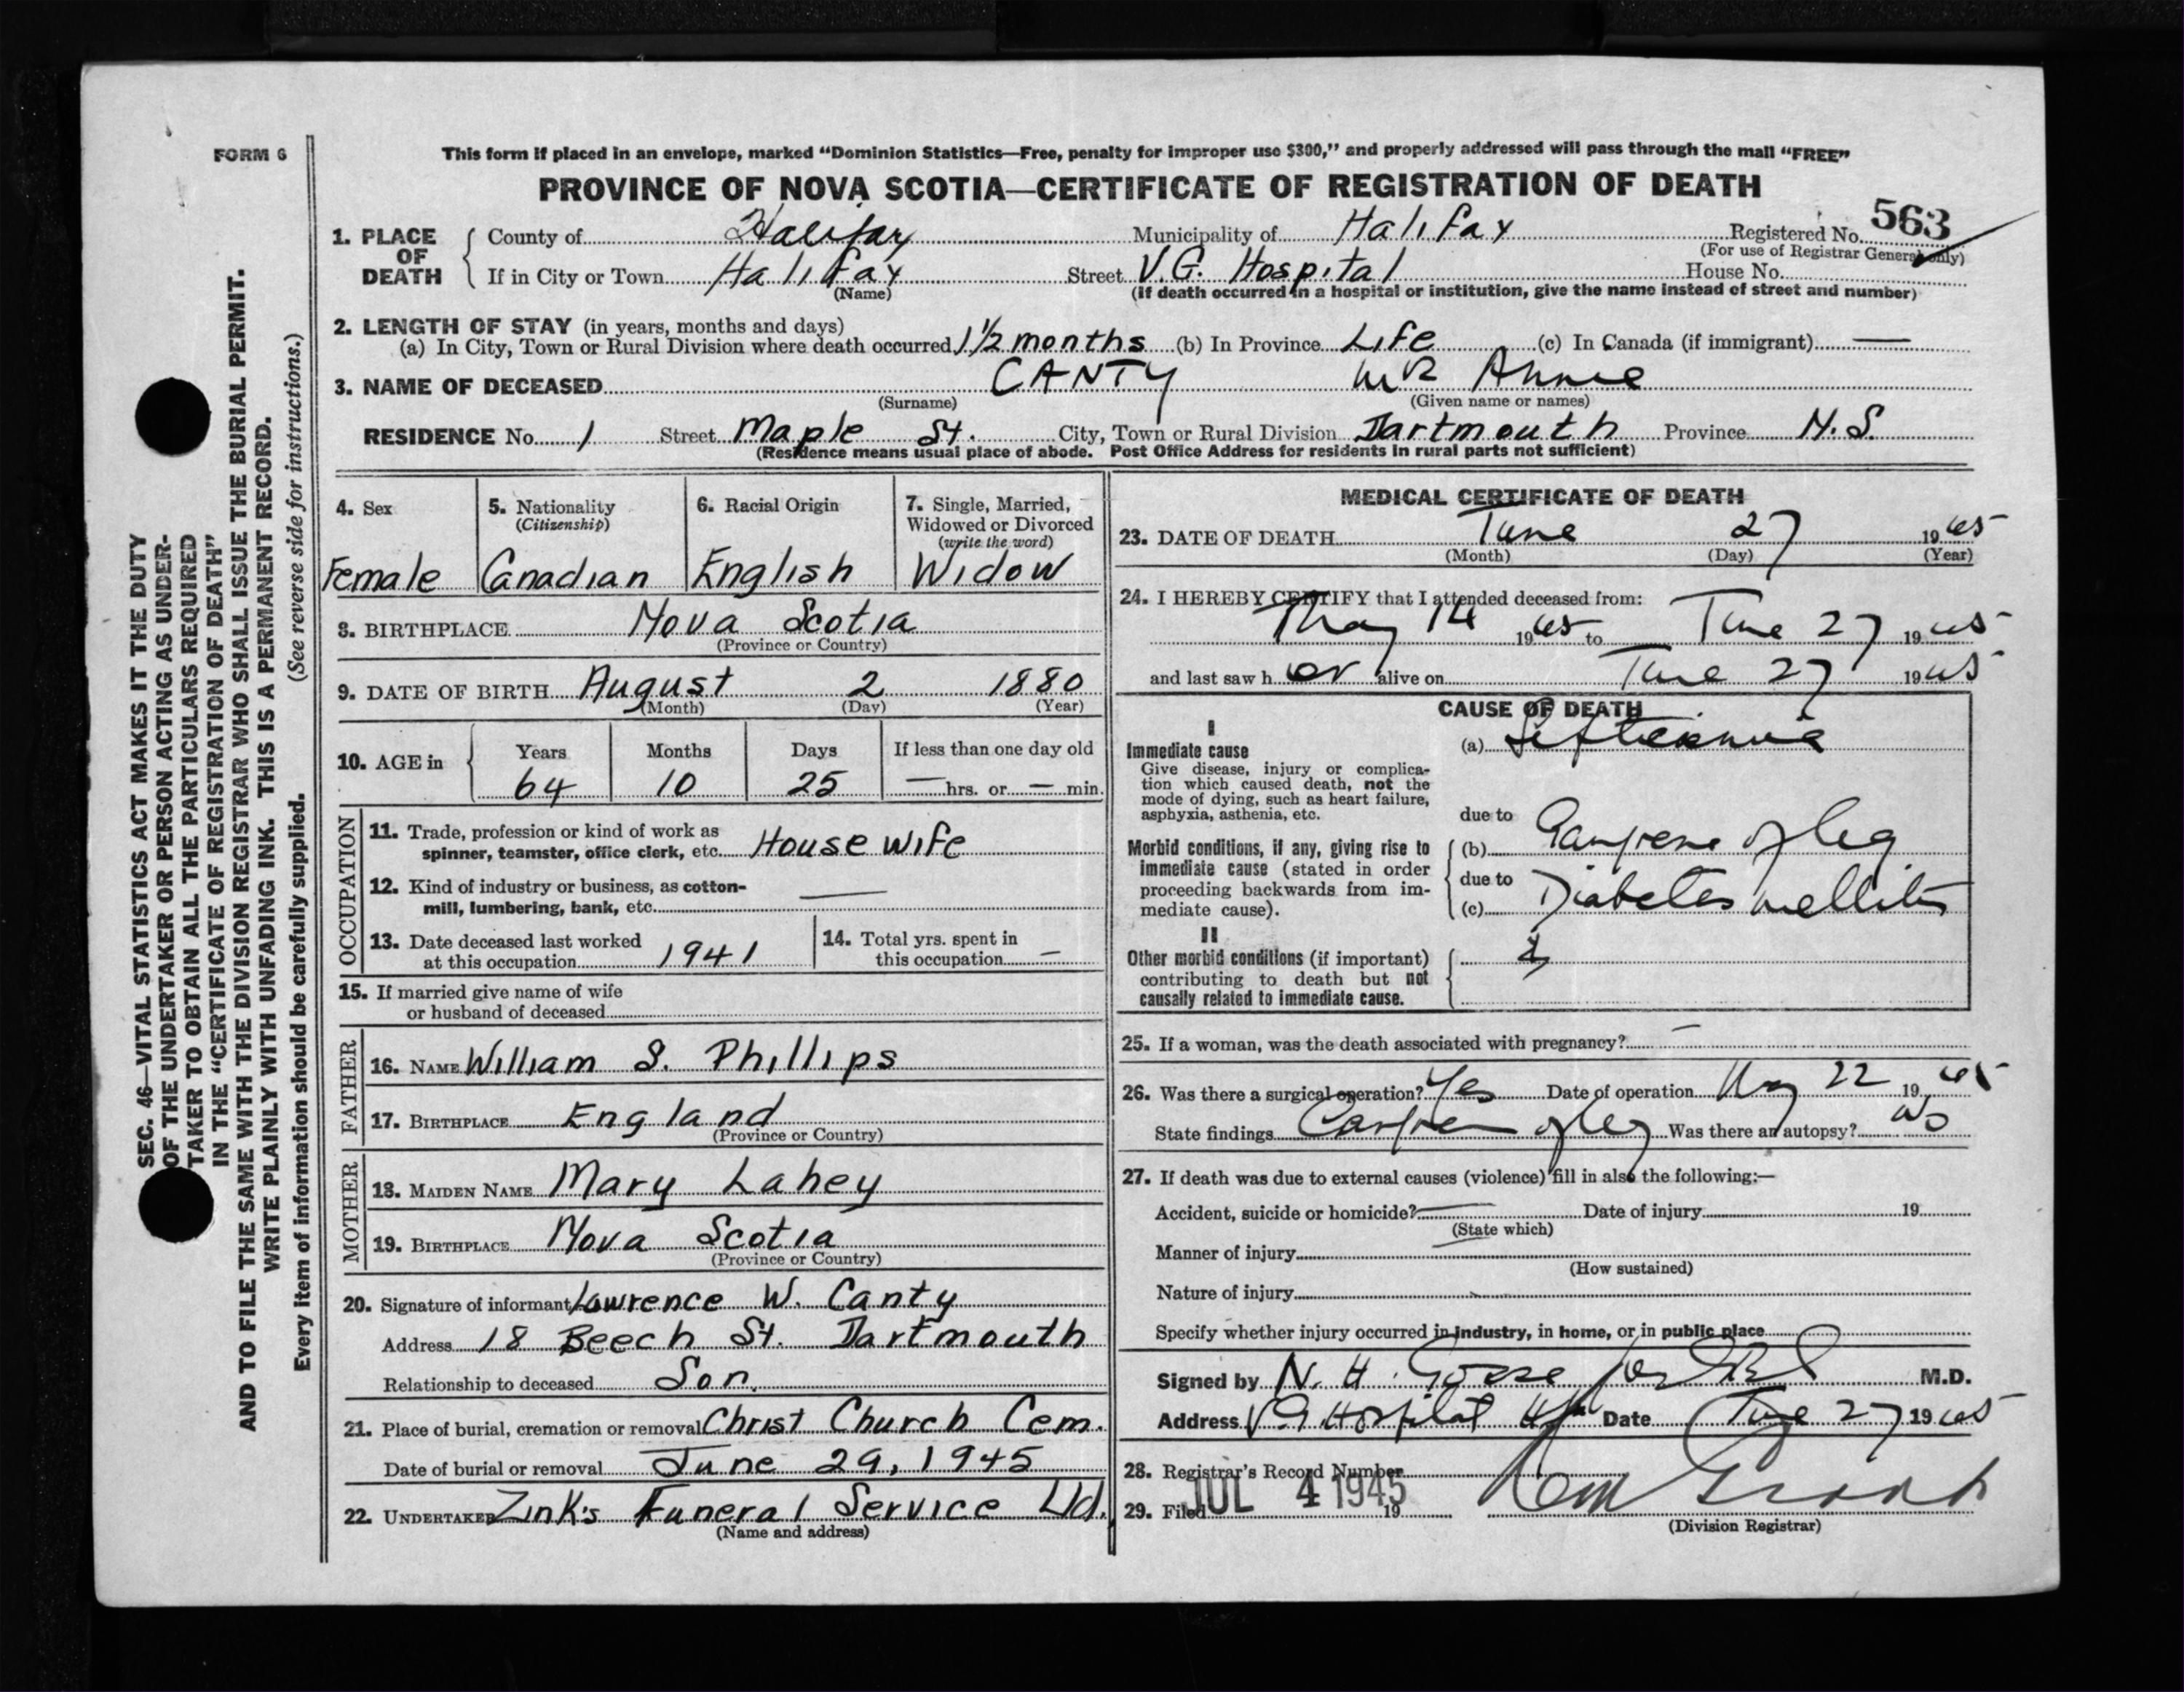 FORM 6
This form if placed in an envelope, marked “Dominion Statistics—Free, penalty for improper use $300,” and properly addressed will pass through the mail “FREE”
PROVINCE OF NOVA SCOTIA—CERTIFICATE OF REGISTRATION OF DEATH
563
1. PLACE OF DEATH County of Halifax Municipality of Halifax Registered No.
(For use of Registrar General only)
If in City or Town Halifax Street V.G. Hospital House No.
(Name) (If death occurred in a hospital or institution, give the name instead of street and number)
2. LENGTH OF STAY (in years, months and days)
(a) In City, Town or Rural Division where death occurred 1½ months (b) In Province Life (c) In Canada (if immigrant) —
3. NAME OF DECEASED CANTY Mrs Annie
(Surname) (Given name or names)
RESIDENCE No. 1 Street Maple St. City, Town or Rural Division Dartmouth Province N.S.
(Residence means usual place of abode. Post Office Address for residents in rural parts not sufficient)
4. Sex 5. Nationality 6. Racial Origin 7. Single, Married,
(Citizenship) Widowed or Divorced
(write the word)
Female Canadian English Widow
8. BIRTHPLACE Nova Scotia
(Province or Country)
9. DATE OF BIRTH August 2 1880
(Month) (Day) (Year)
10. AGE in Years Months Days If less than one day old
64 10 25 — hrs. or — min.
OCCUPATION
11. Trade, profession or kind of work as
spinner, teamster, office clerk, etc. House wife
12. Kind of industry or business, as cotton-
mill, lumbering, bank, etc. —
13. Date deceased last worked
at this occupation 1941
14. Total yrs. spent in
this occupation —
15. If married give name of wife
or husband of deceased
FATHER
16. NAME William S. Phillips
17. BIRTHPLACE England
(Province or Country)
MOTHER
18. MAIDEN NAME Mary Lahey
19. BIRTHPLACE Nova Scotia
(Province or Country)
20. Signature of informant Lawrence W. Canty
Address 18 Beech St. Dartmouth
Relationship to deceased Son.
21. Place of burial, cremation or removal Christ Church Cem.
Date of burial or removal June 29, 1945
22. UNDERTAKER Zink's Funeral Service Ltd.
(Name and address)
MEDICAL CERTIFICATE OF DEATH
23. DATE OF DEATH June 27 1945
(Month) (Day) (Year)
24. I HEREBY CERTIFY that I attended deceased from:
May 14 1945 to June 27 1945
and last saw h er alive on June 27 1945
CAUSE OF DEATH
I
Immediate cause (a) Septicaemia
Give disease, injury or complica-
tion which caused death, not the
mode of dying, such as heart failure,
asphyxia, asthenia, etc.
due to
Morbid conditions, if any, giving rise to
immediate cause (stated in order
proceeding backwards from im-
mediate cause).
(b) Gangrene of leg
due to
(c) Diabetes mellitus
II
Other morbid conditions (if important)
contributing to death but not
causally related to immediate cause.
25. If a woman, was the death associated with pregnancy? —
26. Was there a surgical operation? Yes Date of operation May 22 1945
State findings Gangrene of leg Was there an autopsy? No
27. If death was due to external causes (violence) fill in also the following:—
Accident, suicide or homicide? — Date of injury 19
(State which)
Manner of injury
(How sustained)
Nature of injury
Specify whether injury occurred in industry, in home, or in public place
Signed by N. H. Gosse M.D.
Address V G Hospital Hfx Date June 27 1945
28. Registrar's Record Number
29. Filed JUL 4 1945 19
(Division Registrar)
SEC. 46—VITAL STATISTICS ACT MAKES IT THE DUTY
OF THE UNDERTAKER OR PERSON ACTING AS UNDER-
TAKER TO OBTAIN ALL THE PARTICULARS REQUIRED
IN THE “CERTIFICATE OF REGISTRATION OF DEATH”
AND TO FILE THE SAME WITH THE DIVISION REGISTRAR WHO SHALL ISSUE THE BURIAL PERMIT.
WRITE PLAINLY WITH UNFADING INK. THIS IS A PERMANENT RECORD.
Every item of information should be carefully supplied. (See reverse side for instructions.)